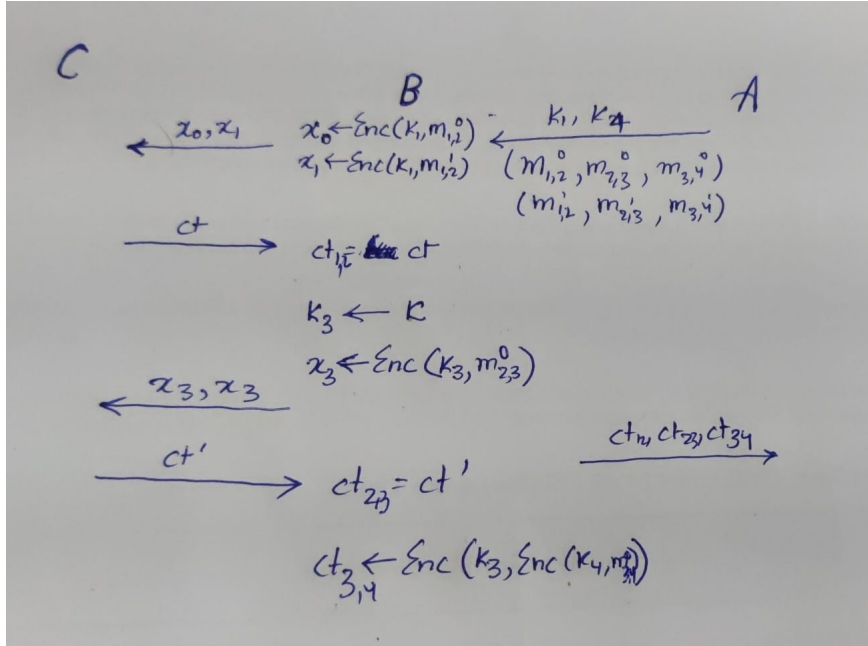 C B A
x₀, x₁
x₀ ← Enc(K₁, m⁰₁,₂)
x₁ ← Enc(K₁, m¹₁,₂)
K₁, K₄
(m⁰₁,₂, m⁰₂,₃, m⁰₃,₄)
(m¹₁,₂, m¹₂,₃, m¹₃,₄)
ct
ct₁,₂ = ct
K₃ ← K
x₃ ← Enc(K₃, m⁰₂,₃)
x₃, x₃
ct'
ct₂,₃ = ct'
ct₁₂, ct₂₃, ct₃₄
ct₃,₄ ← Enc(K₃, Enc(K₄, m))